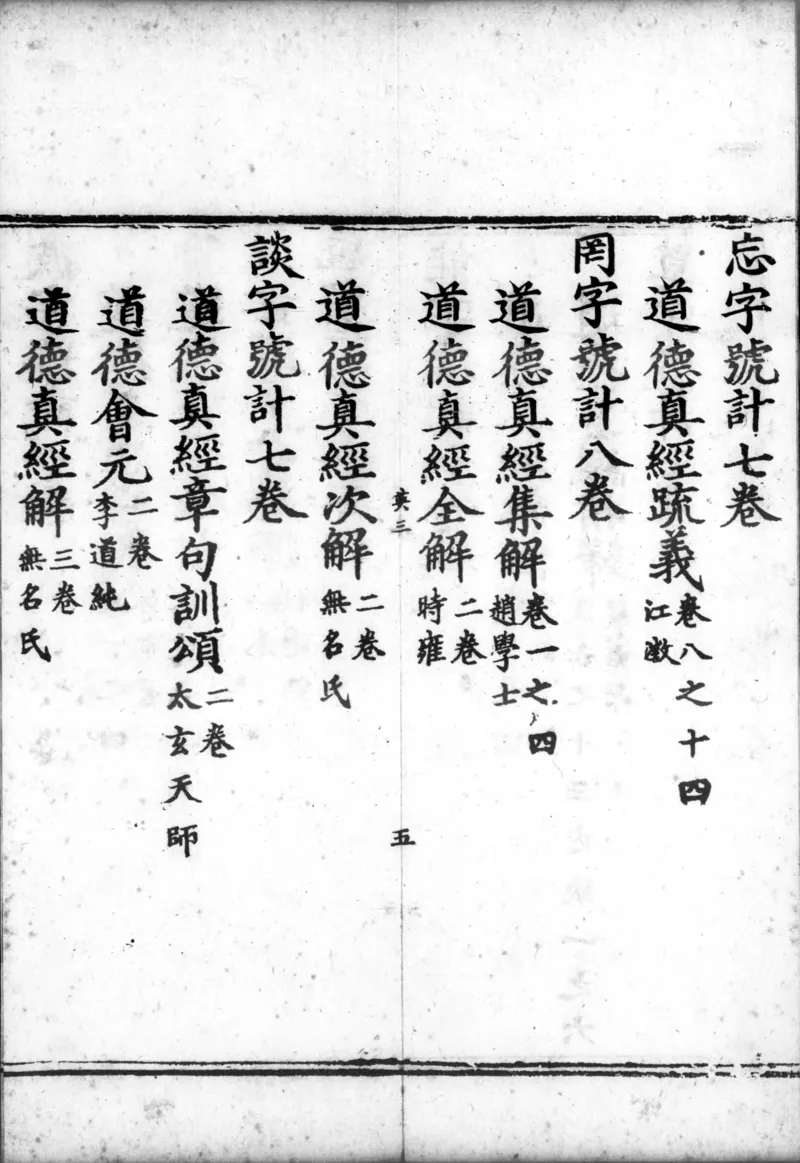 忘字號計七卷
道德真經疏義卷八之十四
江澂
罔字號計八卷
道德真經集解卷一之四
趙學士
道德真經全解二卷
時雍
英三
五
道德真經次解二卷
無名氏
談字號計七卷
道德真經章句訓頌二卷
太玄天師
道德會元二卷
李道純
道德真經解三卷
無名氏